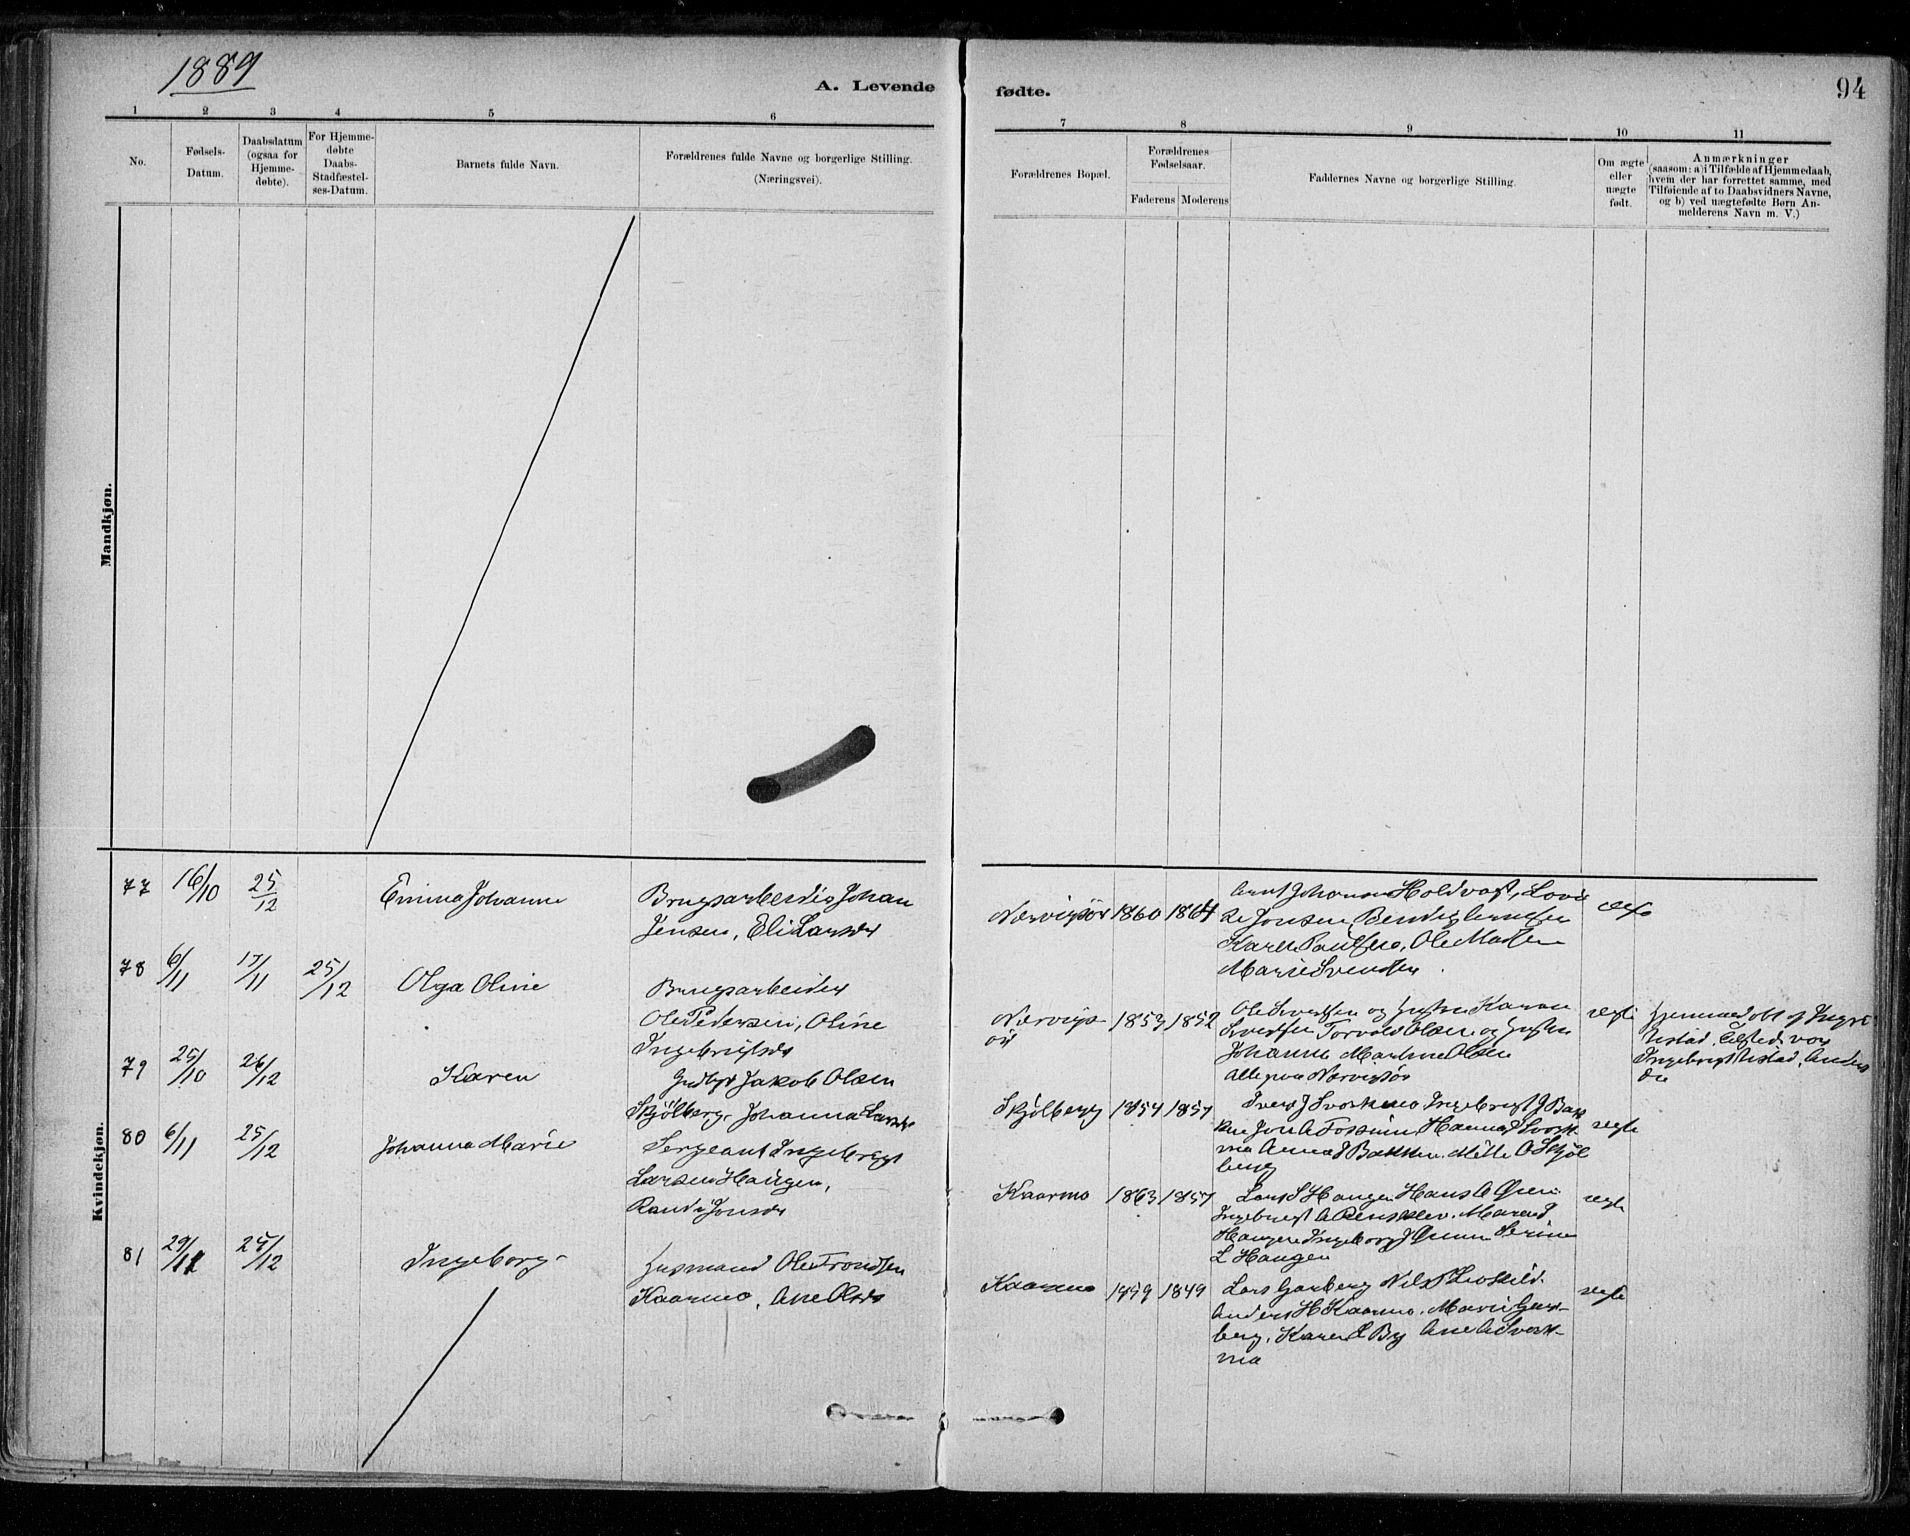 1889
94
A. Levende fødte.
1 2 3 4 5 6 7 8 9 10 11
No.
Fødsels-
Datum.
Daabsdatum
(ogsaa for
Hjemme-
døbte).
For Hjemme-
døbte
Daabs-
Stadfæstel-
ses-Datum.
Barnets fulde Navn.
Forældrenes fulde Navne og borgerlige Stilling.
(Næringsvei).
Forældrenes Bopæl.
Forældrenes
Fødselsaar.
Faderens Moderens
Faddernes Navne og borgerlige Stilling.
Om ægte
eller
uægte
født.
Anmærkninger
(saasom: a) i Tilfælde af Hjemmedaab,
hvem der har forrettet samme, med
Tilføiende af to Daabsvidners Navne,
og b) ved uægtefødte Børn An-
melderens Navn m. V.)
Mandkjøn.
Kvindekjøn.
77 16/10 25/12
Emma Johanne
Brugsarbeider Johan
Jensen, Eli Larsdr
1860 1864
Johansen Holdvagt,
Jonsen
Karen Paulsen, Ole Madsen
Marie Svendsen.
78 6/11 17/11 25/12
Olga Oline
Brugsarbeider
Ole Pedersen, Oline
Ingebrigtsdr
1853 1852
Ole Sivertsen og Hustru Karen
Sivertsen Torvald Olsen og Hustru
Johanna Martine Olsen
alle paa
ægte
Hjemmedøbt af
Ingebrigt
79 25/10 26/12
Karen
Grdbgr Jakob Olsen
Skjølberg, Johanna Larsdr
Skjølberg 1854 1857
Iver J Svorkmo Ingebrigt J Bak
ken Jon A Fossum Hanna
mo Anna J Bakken. Mette O Skjøl
berg
ægte
80 6/11 25/12
Johanna Marie
Sergeant Ingebrigt
Larsen Haugen,
Randi Jonsdr
Kaarmo 1863 1857
Lars L Haugen Hans
Ingebrigt A
Haugen Ingeborg J
L Haugen
ægte
81 29/11 25/12
Ingeborg
Husmand Ole Trondsen
Kaarmo, Ane Olsdr
Kaarmo 1859 1849
Lars Garberg Nils
Anders H Kaarmo. Marie Gar-
berg, Karen L By Ane A Svork-
mo
ægte